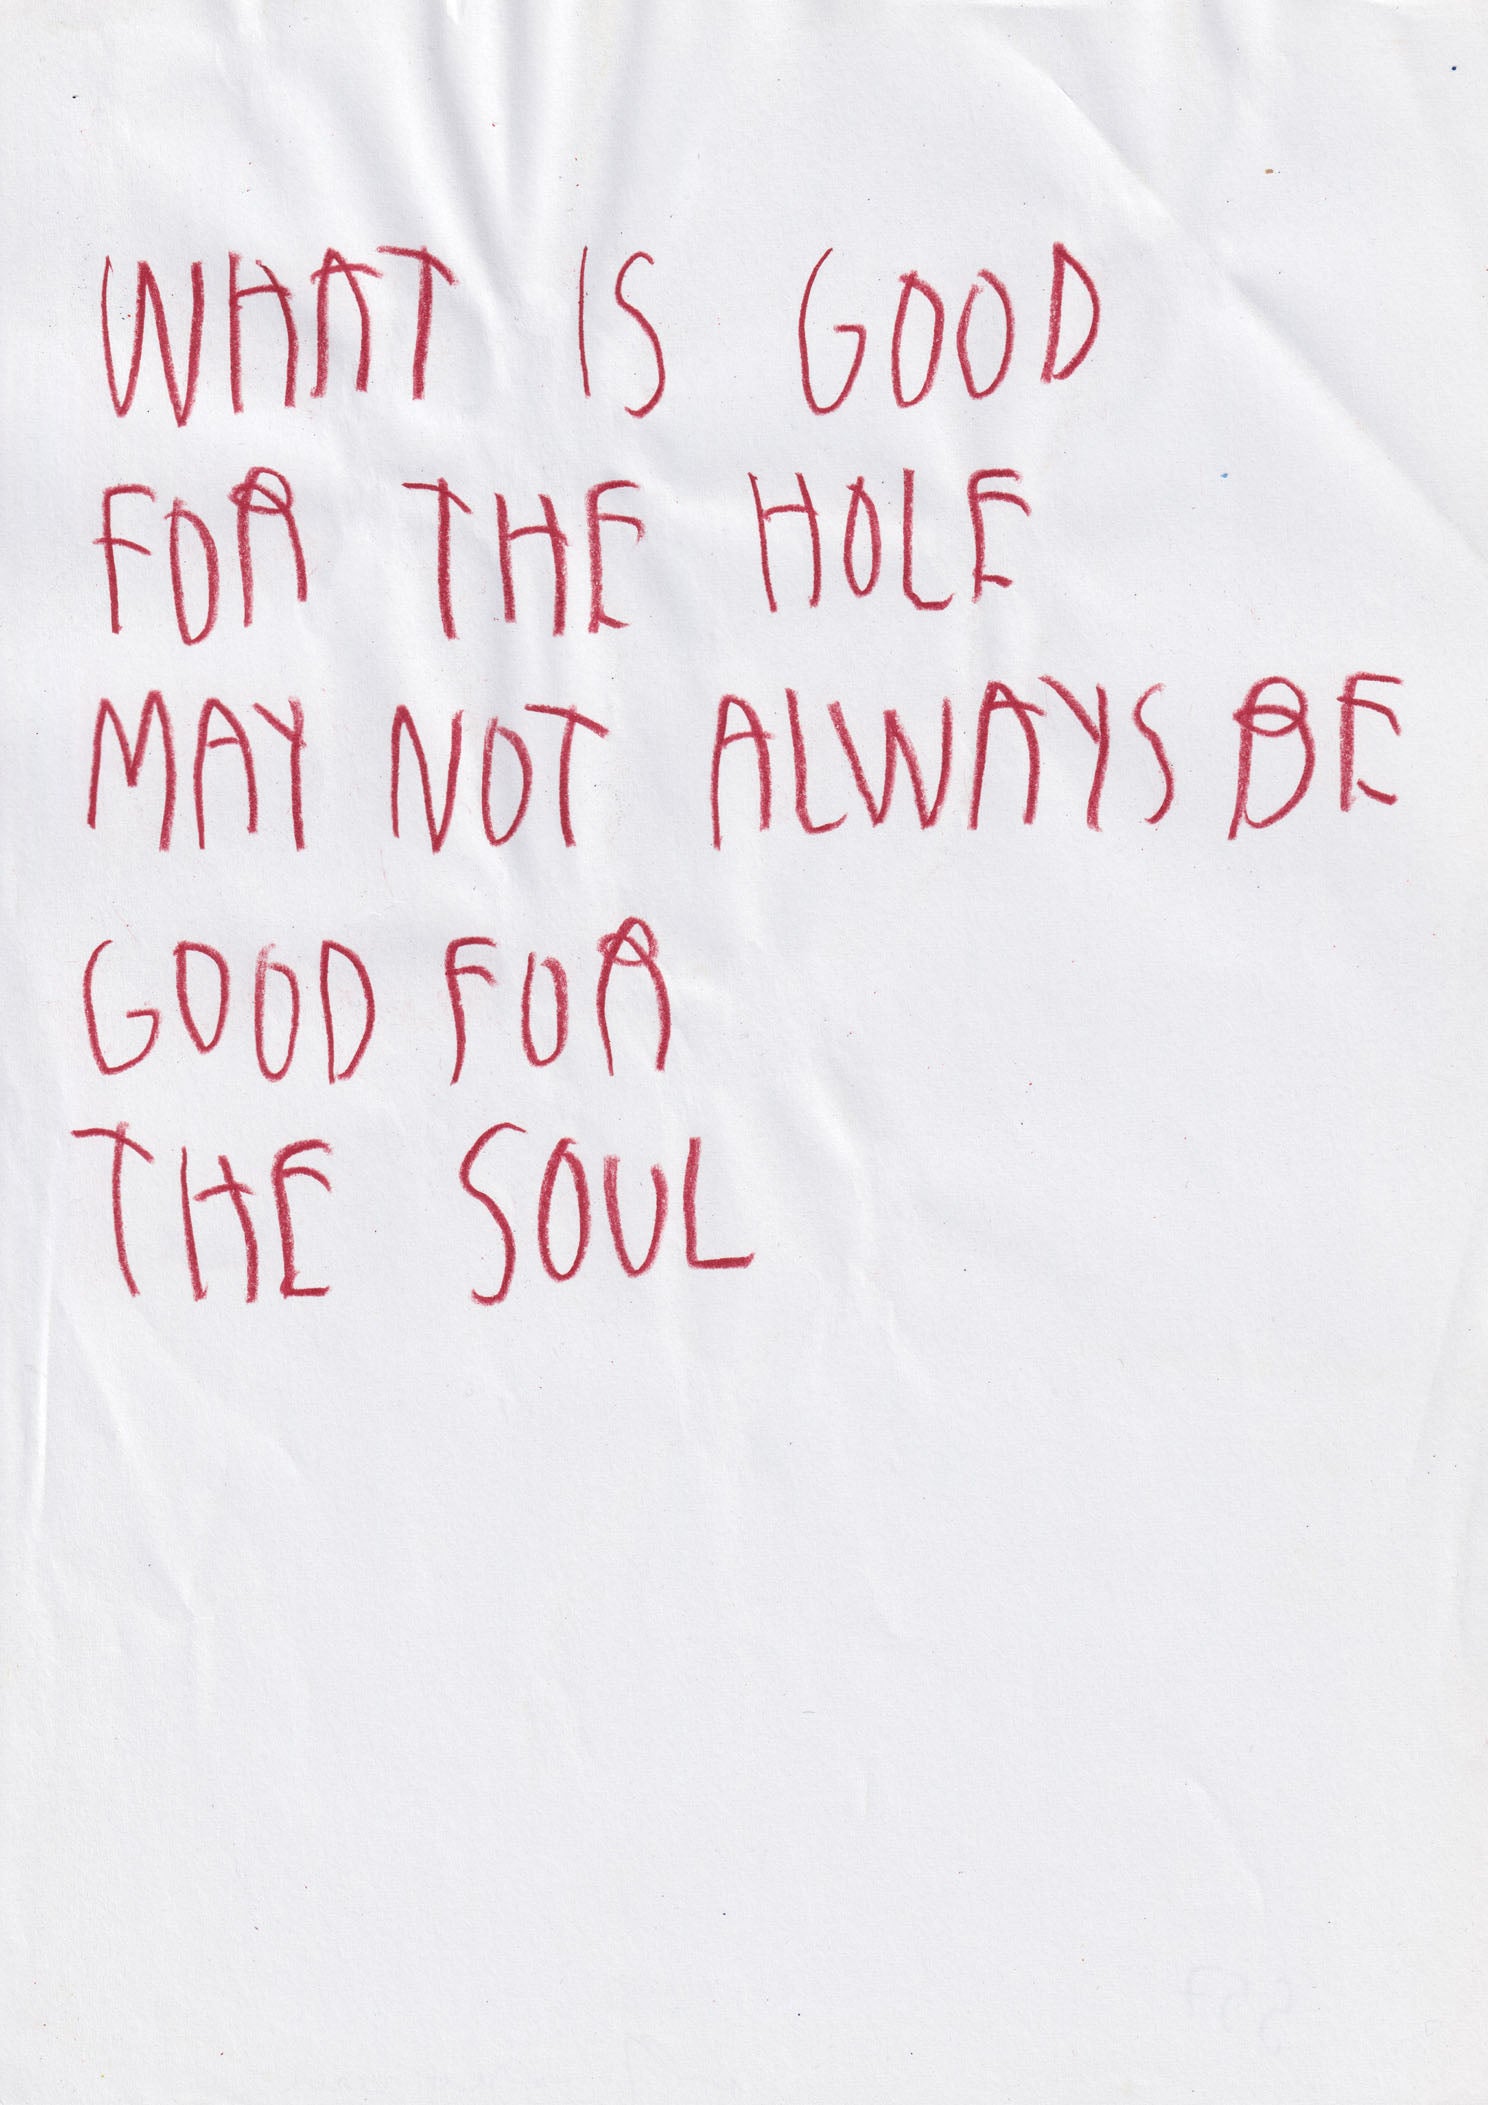 WHAT IS GOOD
FOR THE HOLE
MAY NOT ALWAYS BE
GOOD FOR
THE SOUL